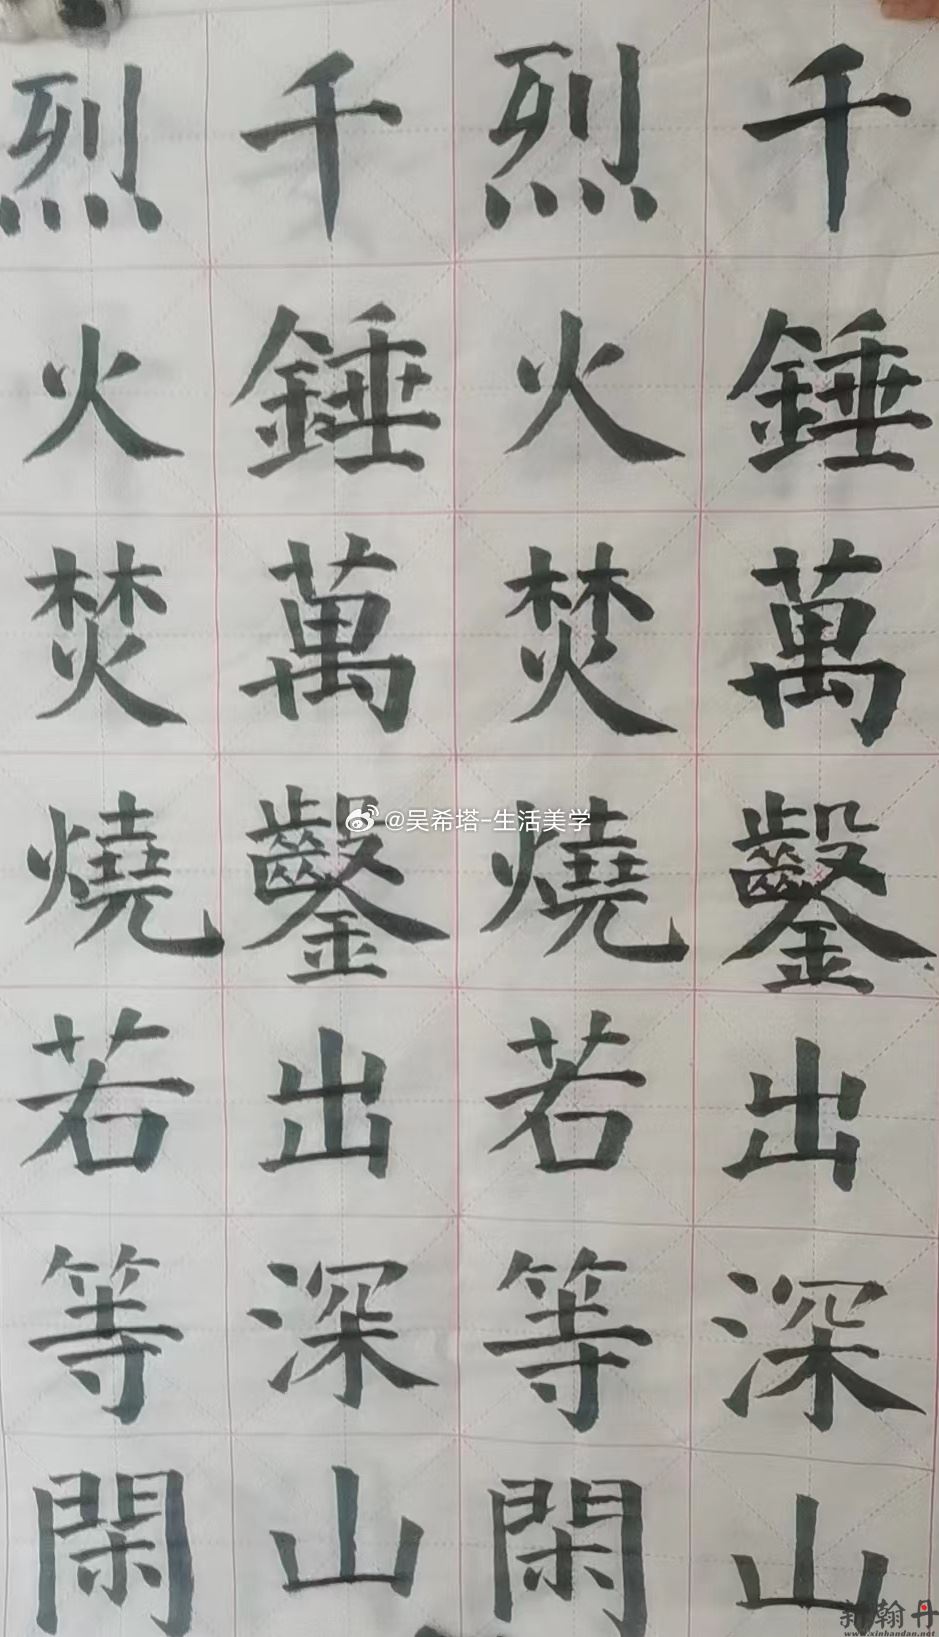 千錘萬鑿出深山
烈火焚燒若等閑
千錘萬鑿出深山
烈火焚燒若等閑
@吴希塔-生活美学
新翰丹
www.xinhandan.net